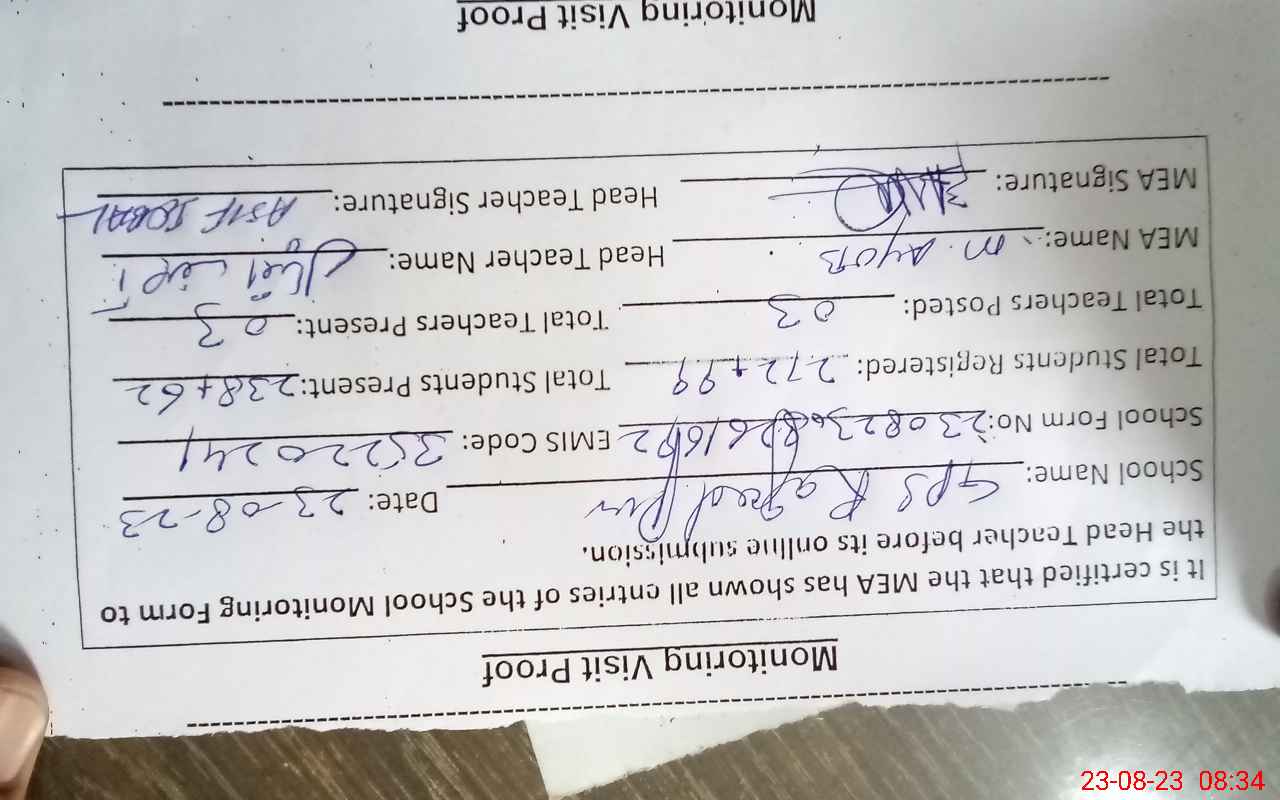 Monitoring Visit Proof
It is certified that the MEA has shown all entries of the School Monitoring Form to
the Head Teacher before its online submission.
School Name: GPS Pur Date: 23-08-23
School Form No: EMIS Code: 35220241
Total Students Registered: 272+99 Total Students Present: 238+62
Total Teachers Posted: 03 Total Teachers Present: 03
MEA Name: M. AYOB Head Teacher Name:
MEA Signature: Head Teacher Signature: ASIF IQBAL
Monitoring Visit Proof
23-08-23 08:34